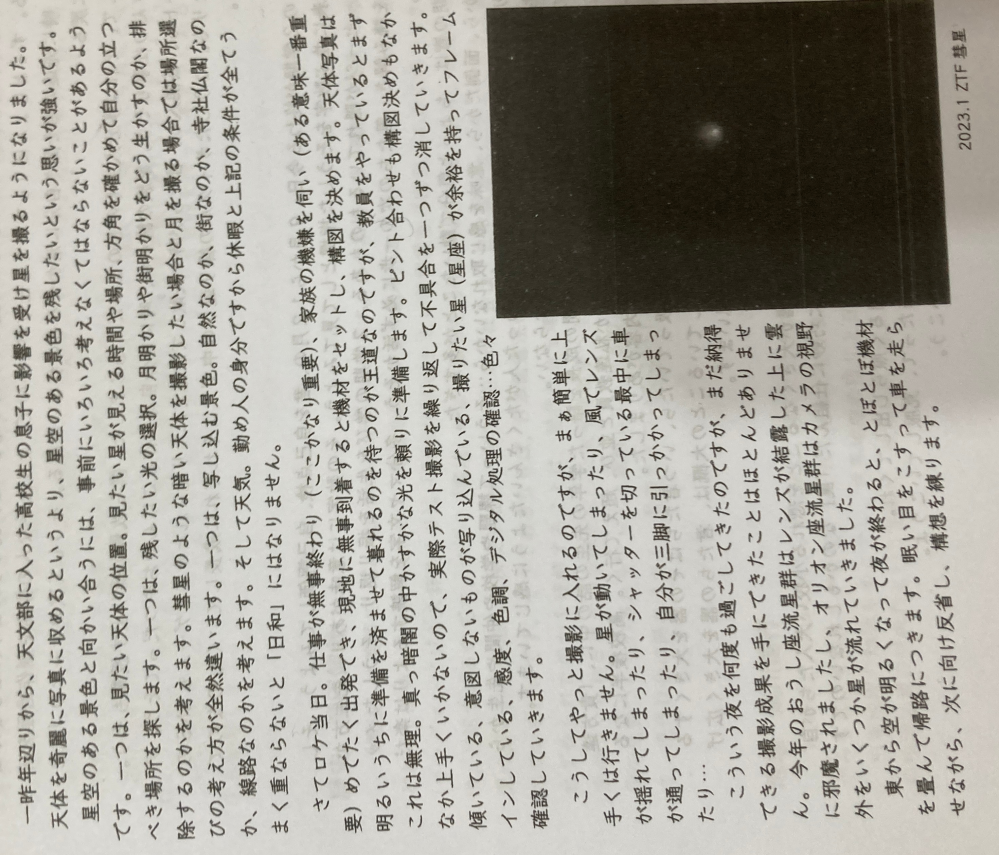 一昨年辺りから、天文部に入った高校生の息子に影響を受け星を撮るようになりました。
天体を奇麗に写真に収めるというより、星空のある景色を残したいという思いが強いです。
星空のある景色と向かい合うには、事前にいろいろ考えなくてはならないことがあるよう
です。一つは、見たい天体の位置。見たい星が見える時間や場所、方角を確かめて自分の立つ
べき場所を探します。一つは、残したい光の選択。月明かりや街明かりをどう生かすのか、排
除するのかを考えます。彗星のような暗い天体を撮影したい場合と月を撮る場合では場所選
びの考え方が全然違います。一つは、写し込む景色。自然なのか、街なのか、寺社仏閣なの
か、線路なのかを考えます。そして天気。勤め人の身分ですから休暇と上記の条件が全てう
まく重ならないと「日和」にはなりません。
さてロケ当日。仕事が無事終わり（ここかなり重要）、家族の機嫌を伺い（ある意味一番重
要）めでたく出発でき、現地に無事到着すると機材をセットし、構図を決めます。天体写真は
明るいうちに準備を済ませて暮れるのを待つのが王道なのですが、教員をやっているとまず
これは無理。真っ暗闇の中かすかな光を頼りに準備します。ピント合わせも構図決めもなか
なか上手くいかないので、実際テスト撮影を繰り返して不具合を一つずつ消していきます。
傾いている、意図しないものが写り込んでいる、撮りたい星（星座）が余裕を持ってフレーム
インしている、感度、色調、デジタル処理の確認…色々
確認していきます。
こうしてやっと撮影に入れるのですが、まぁ簡単に上
手くは行きません。星が動いてしまったり、風でレンズ
が揺れてしまったり、シャッターを切っている最中に車
が通ってしまったり、自分が三脚に引っかかってしまっ
たり…
こういう夜を何度も過ごしてきたのですが、まだ納得
できる撮影成果を手にできたことはほとんどありませ
ん。今年のおうし座流星群はレンズが結露した上に雲
に邪魔されましたし、オリオン座流星群はカメラの視野
外をいくつか星が流れていきました。
東から空が明るくなって夜が終わると、とぼとぼ機材
を畳んで帰路につきます。眠い目をこすって車を走ら
せながら、次に向け反省し、構想を練ります。
2023.1 ZTF 彗星